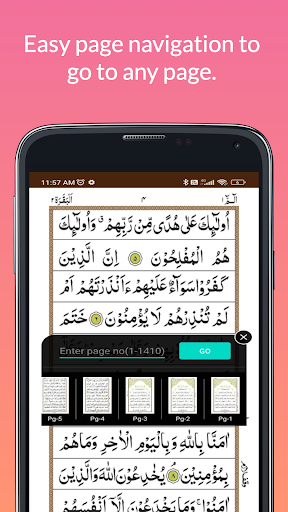 Easy page navigation to
go to any page.
11:57 AM
البقرة ٢ ۴ الٓمّٓ ١
اُولٰٓئِكَ عَلٰى هُدًى مِّنْ رَّبِّهِمْ ۙ وَاُولٰٓئِكَ
هُمُ الْمُفْلِحُوْنَ ۝۵ اِنَّ الَّذِيْنَ
كَفَرُوْا سَوَآءٌ عَلَيْهِمْ ءَاَنْذَرْتَهُمْ اَمْ
لَمْ تُنْذِرْهُمْ لَا يُؤْمِنُوْنَ ۝۶ خَتَمَ
Enter page no(1-1410)
GO
Pg-5 Pg-4 Pg-3 Pg-2 Pg-1
اٰمَنَّا بِاللّٰهِ وَبِالْيَوْمِ الْاٰخِرِ وَمَا هُمْ
بِمُؤْمِنِيْنَ ۝۸ يُخٰدِعُوْنَ اللّٰهَ وَالَّذِيْنَ
اٰمَنُوْا ۚ وَمَا يَخْدَعُوْنَ اِلَّآ اَنْفُسَهُمْ